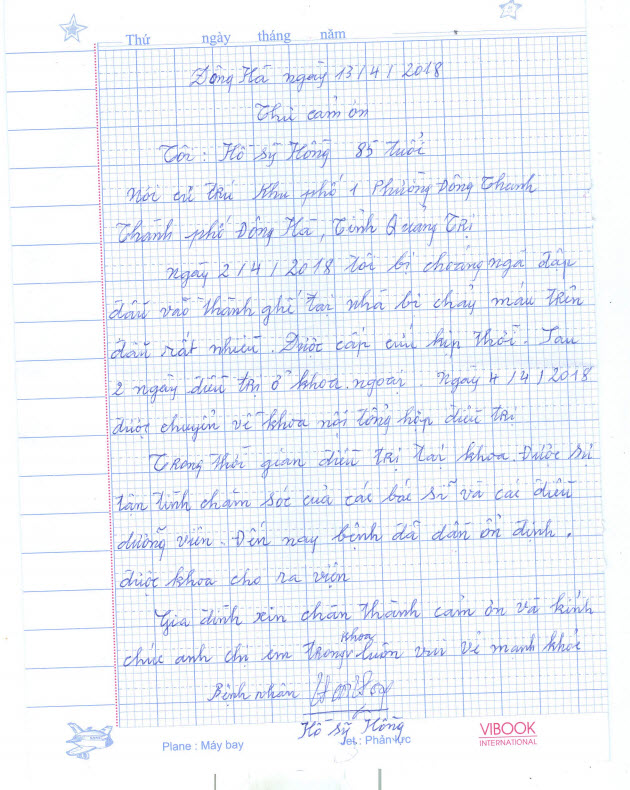 Thứ ngày tháng năm
Đông Hà ngày 13/4/2018
Thư cảm ơn
Tôi : Hồ Sỹ Hồng 85 tuổi
Nơi cư trú Khu phố 1 Phường Đông Thanh
Thành phố Đông Hà, Tỉnh Quảng Trị
ngày 2/4/2018 tôi bị choáng ngã đập
đầu vào thành ghế tại nhà bị chảy máu trên
đầu rất nhiều. Được cấp cứu kịp thời. Sau
2 ngày điều trị ở khoa ngoại. Ngày 4/4/2018
được chuyển về khoa nội tổng hợp điều trị
Trong thời gian điều trị tại khoa. Được sự
tận tình chăm sóc của các bác sĩ và các điều
dưỡng viên. Đến nay bệnh đã dần ổn định.
được khoa cho ra viện
Gia đình xin chân thành cảm ơn và kính
chúc anh chị em trong khoa luôn vui vẻ mạnh khỏe
Bệnh nhân
Hồ Sỹ Hồng
Plane : Máy bay Jet : Phản lực VIBOOK
INTERNATIONAL